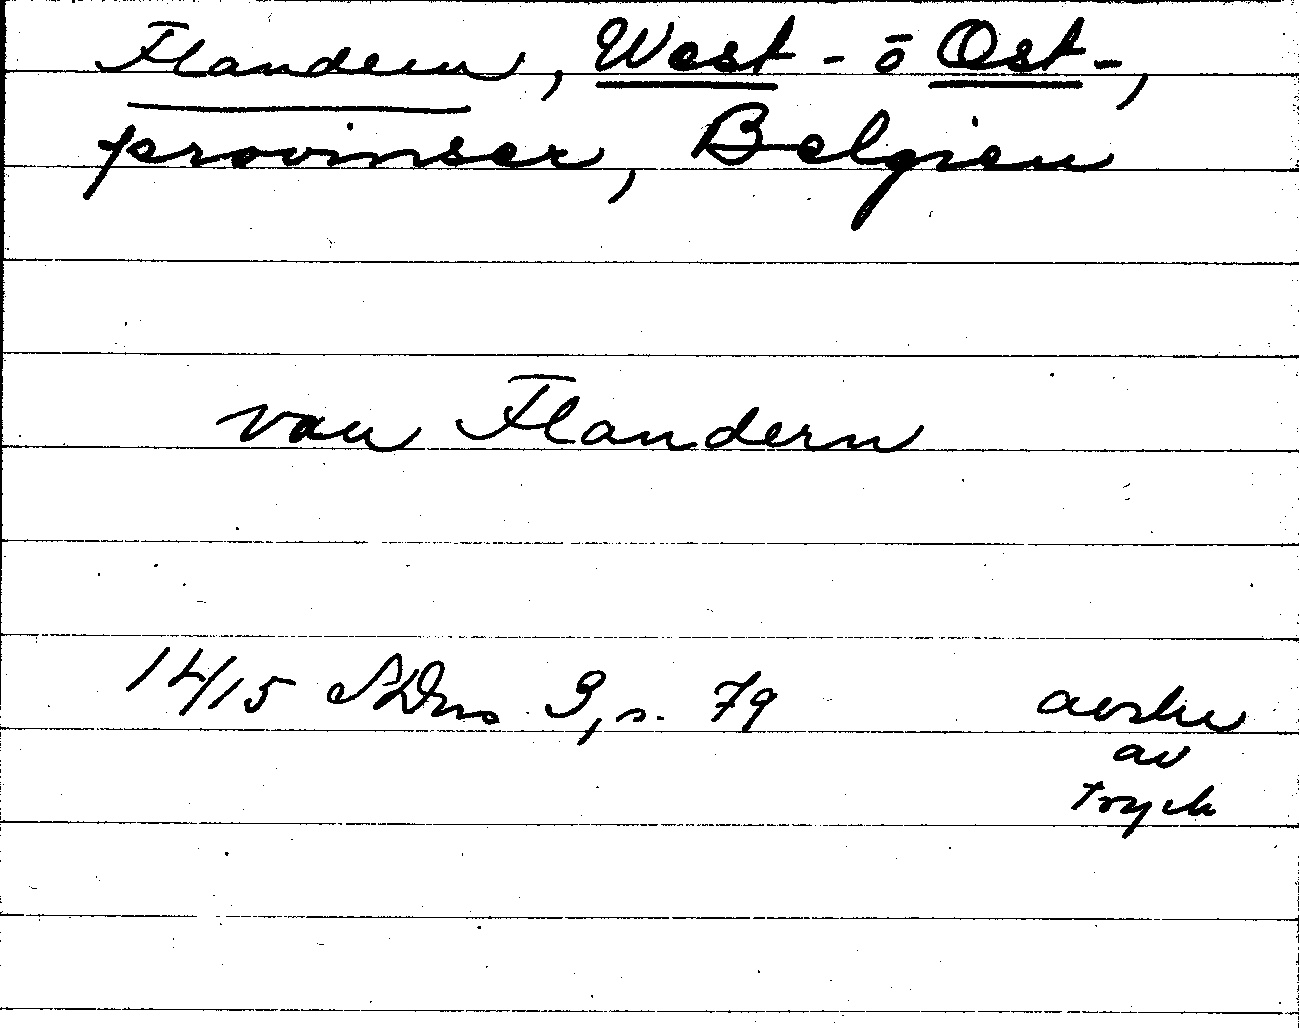 Flandern, West- o Ost-,
provinser, Belgien
van Flandern
14/15 SDns 3, s. 79
avskr
av
tryck